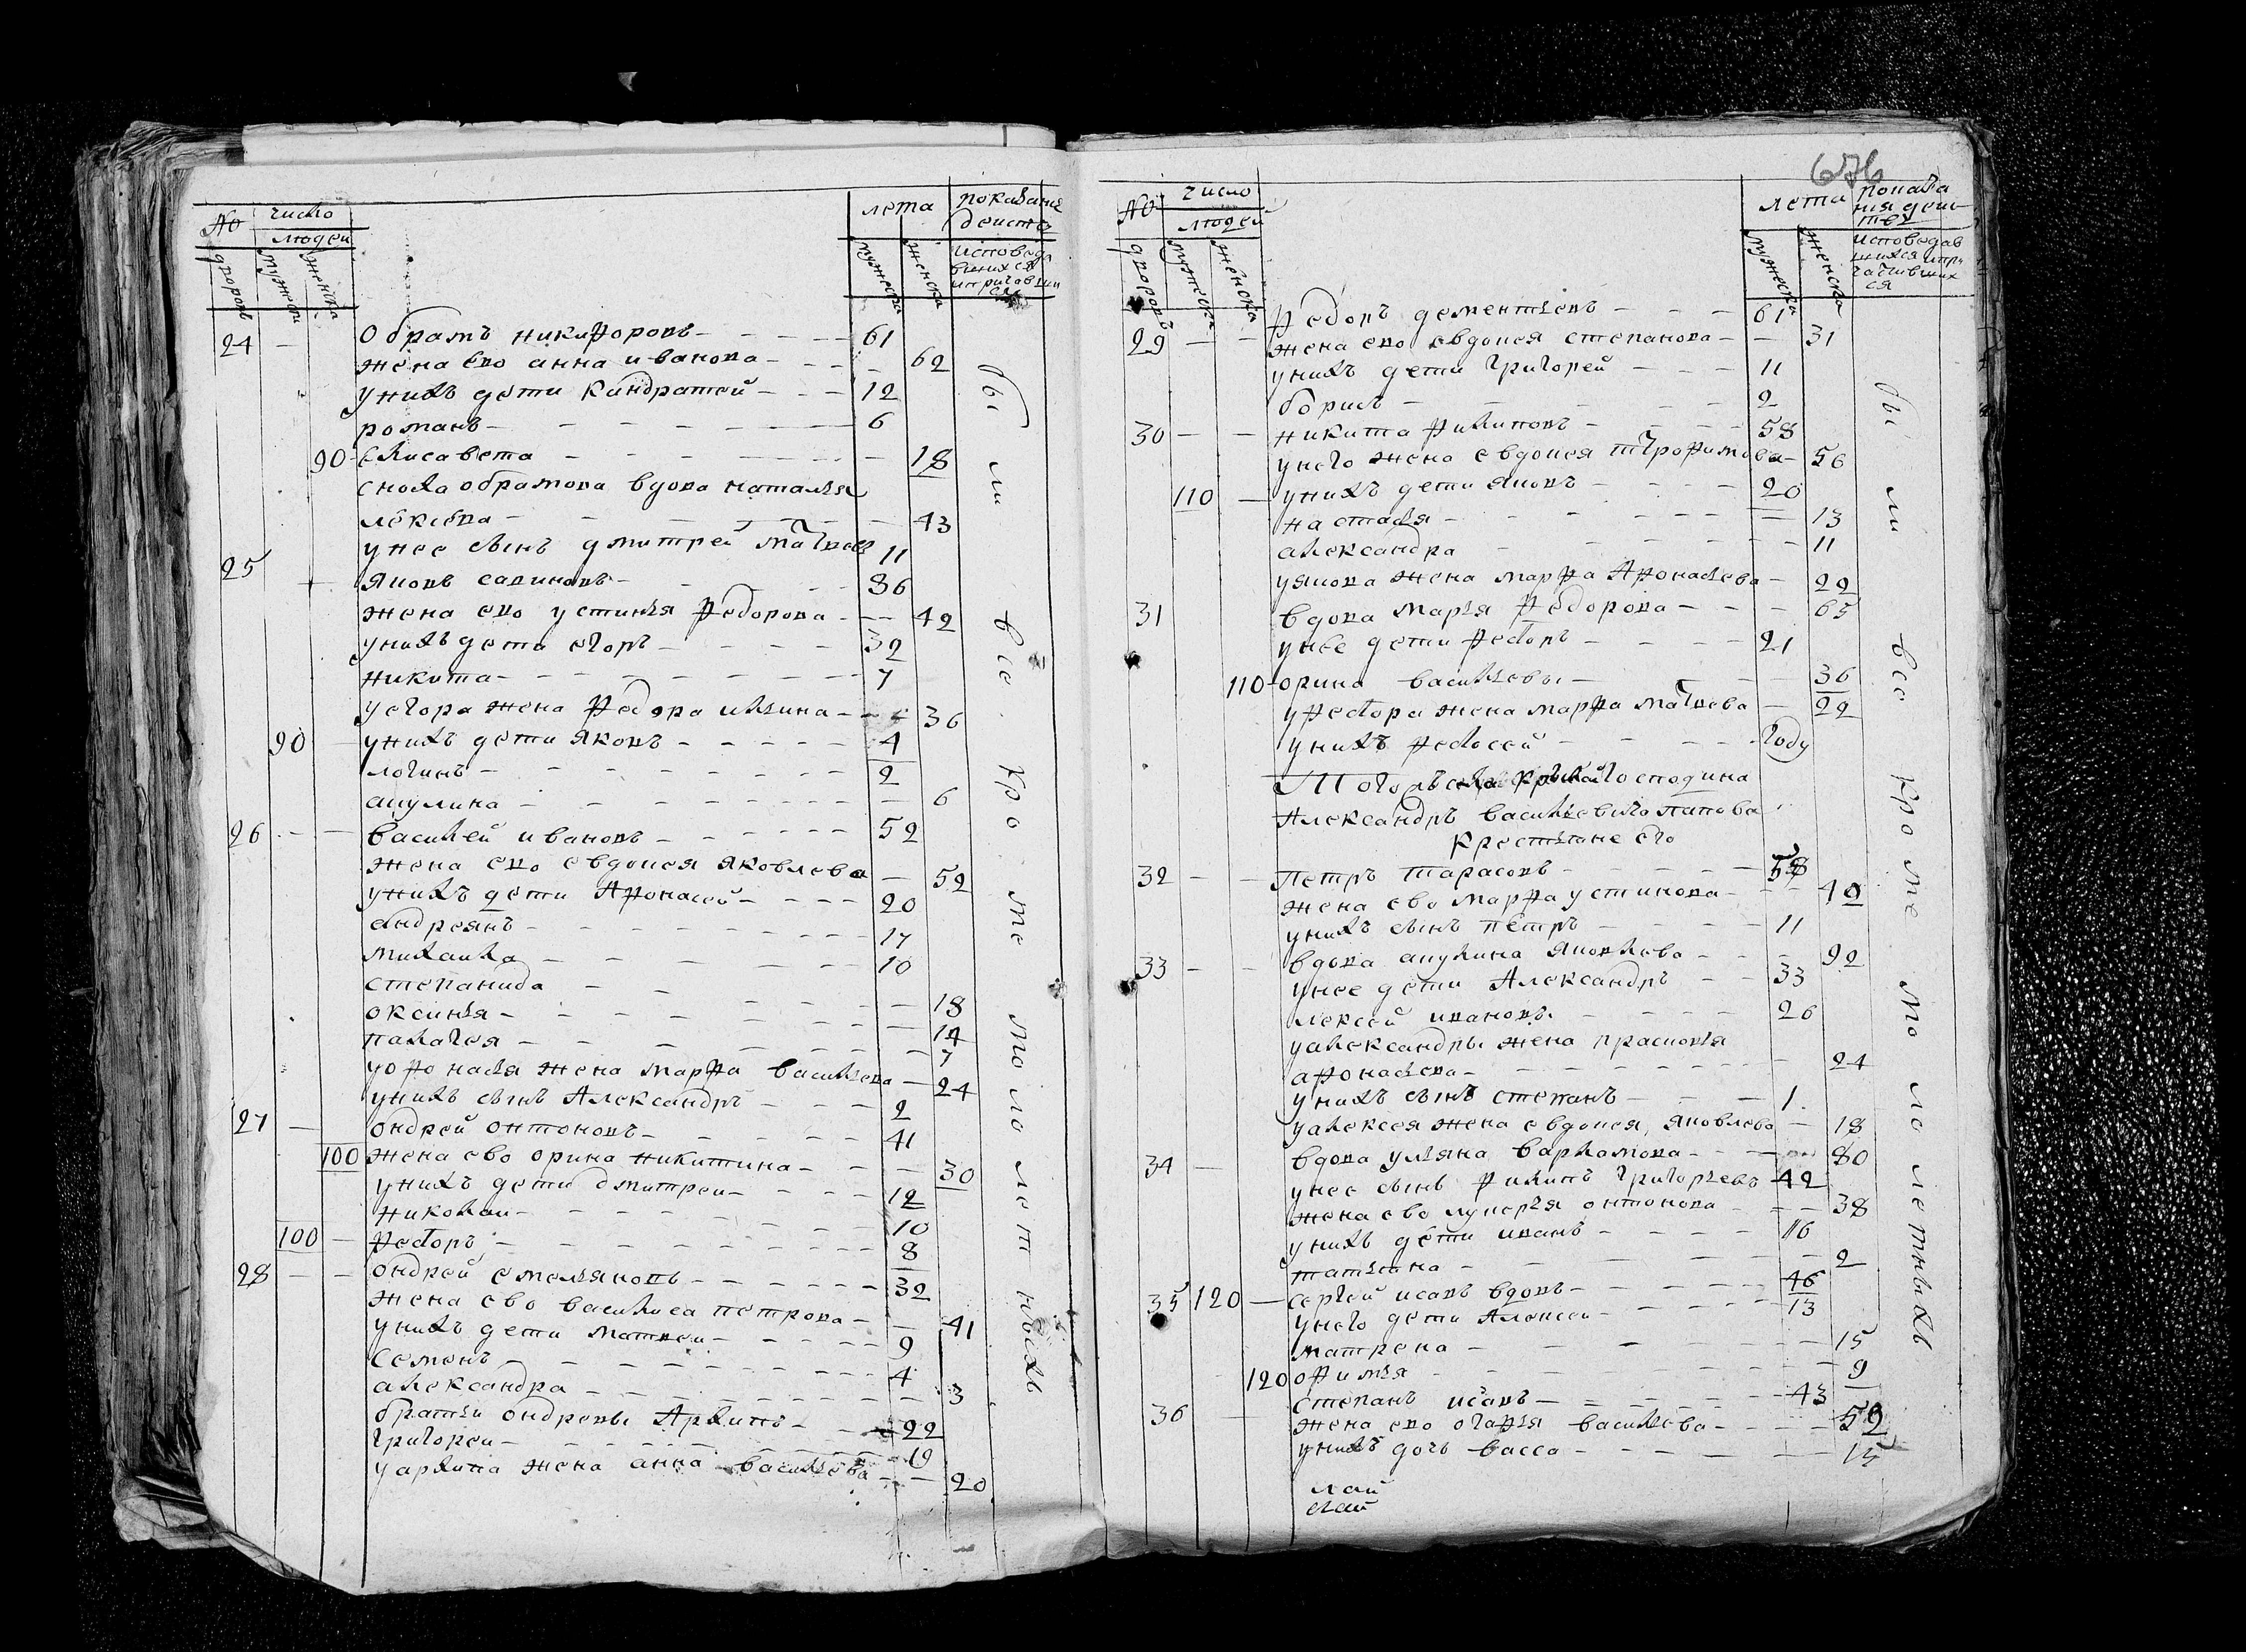 No
число
людей
лета
показание
деиств
дворовъ
мужеска
женска
мужеска
женска
исповеда
вшихся
и причавши
ся
24 — Обрамъ никифоровъ — 61
жена ево анна иванова — 62
у нихъ дети Кандратей — 12
романъ — 6
90 Елисавета — 18
сноха обрамова вдова наталья
лексевна — 43
у нее сынъ дмитрей матвев 11
25 яковъ савиновъ — 36
жена ево устинья Федорова — 42
у нихъ дети егоръ — 32
никита — 7
у егора жена Федора ильина — 36
90 — у нихъ дети яковъ — 4
логинъ — 2
акулина — 6
26 — — василей ивановъ — 52
жена ево евдокея яковлева — 52
у нихъ дети Афонасей — 20
андреянъ — 17
михаила — 10
степанида — 18
оксинья — 14
палагея — 7
у офонасья жена марфа васильева — 24
у нихъ сынъ Александръ — 2
27 — ондрей онтоновъ — 41
100 жена ево орина никитина — 30
у нихъ дети дмитреи — 12
николаи — 10
100 — Федоръ — 8
28 — — ондрей емельяновъ — 32
жена ево василиса петрова — 41
у нихъ дети матвеи — 9
семенъ — 4
александра — 3
братьи ондревы Архипъ — 22
григореи — 19
у архипа жена анна васильева — 20
были все кроме малолетныхъ
676
No
число
людей
лета
показа
ния деис
твъ
дворовъ
мужеска
женска
мужеска
женска
исповедав
шихся и при
частивших
ся
29 — — Федоръ дементьевъ — 61
жена ево евдокея степанова — 31
у нихъ дети григорей — 11
борисъ — 2
30 — — никита филиповъ — 58
у него жена евдокея трофимова — 56
110 — у нихъ дети яковъ — 20
настасья — 13
александра — 11
у якова жена марфа Афонасьева — 22
31 вдова марья Федорова — 65
у нее дети Федоръ — 21
110 орина васильевы — 36
у Федора жена марфа матвева — 22
у нихъ Федосей — году
Тогожъ села господина
Александръ васильевича попова
крестьяне его
32 — — Петръ тарасовъ — 58
жена ево марфа устинова — 40
у нихъ сынъ петръ — 11
33 — — вдова акулина яковлева — 92
у нее дети Александръ — 33
лексей ивановы — 26
у александры жена прасковья
афонасьева — 24
у нихъ сынъ степанъ — 1
у алексея жена евдокея яковлева — 18
34 — вдова ульяна варламова — 80
у нее сынъ филипъ григорьевъ 42
жена ево лукерья онтонова — 38
у нихъ дети иванъ — 16
татьяна — 2
35 120 — сергей исавъ вдовъ — 46
у него дети Алексеи — 13
матрена — 15
120 офимья — 9
36 — степанъ исавъ — 43
жена ево огафья васильева — 52
у нихъ дочь васса — 15
лаи
лаи
были все кроме малолетныхъ